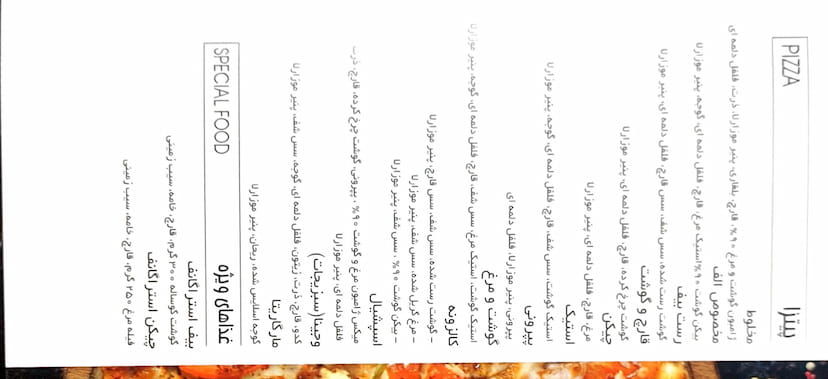 پیتزا PIZZA
مخلوط
ژامبون گوشت و مرغ ۹۰%، قارچ، بلغاری، پنیر موزارلا، ذرت، فلفل دلمه ای
مخصوص الف
بیکن گوشت ۹۰%استیک مرغ، قارچ، فلفل دلمه ای، گوجه، پنیر موزارلا
رست بیف
گوشت رست شده، سس شف، سس قارچ، فلفل دلمه ای، پنیر موزارلا
قارچ و گوشت
گوشت چرخ کرده، قارچ، فلفل دلمه ای، پنیر موزارلا
چیکن
مرغ، قارچ، فلفل دلمه ای، پنیر موزارلا
استیک
استیک گوشت، سس شف، قارچ، فلفل دلمه ای، گوجه، پنیر موزارلا
پپرونی
پپرونی، پنیر موزارلا، فلفل دلمه ای
گوشت و مرغ
استیک گوشت، استیک مرغ، سس شف، قارچ، فلفل دلمه ای، گوجه، پنیر موزارلا
کالزونه
- گوشت رست شده، سس شف، سس قارچ، پنیر موزارلا
- مرغ گریل شده، سس شف، پنیر موزارلا
- بیکن گوشت ۹۰%، سس شف، پنیر موزارلا
اسپشیال
میکس ژامبون مرغ و گوشت ۹۰%، پپرونی، گوشت چرخ کرده، قارچ، ذرت
فلفل دلمه ای، پنیر موزارلا
وجیتا(سبزیجات)
کدو، قارچ، ذرت، زیتون، فلفل دلمه ای، گوجه، سس شف، پنیر موزارلا
مارگاریتا
گوجه اسلایس شده، ریحان، پنیر موزارلا
غذاهای ویژه SPECIAL FOOD
بیف استراگانف
گوشت گوساله ۳۰۰ گرم، قارچ، خامه، سیب زمینی
چیکن استراگانف
فیله مرغ ۲۵۰ گرم، قارچ، خامه، سیب زمینی